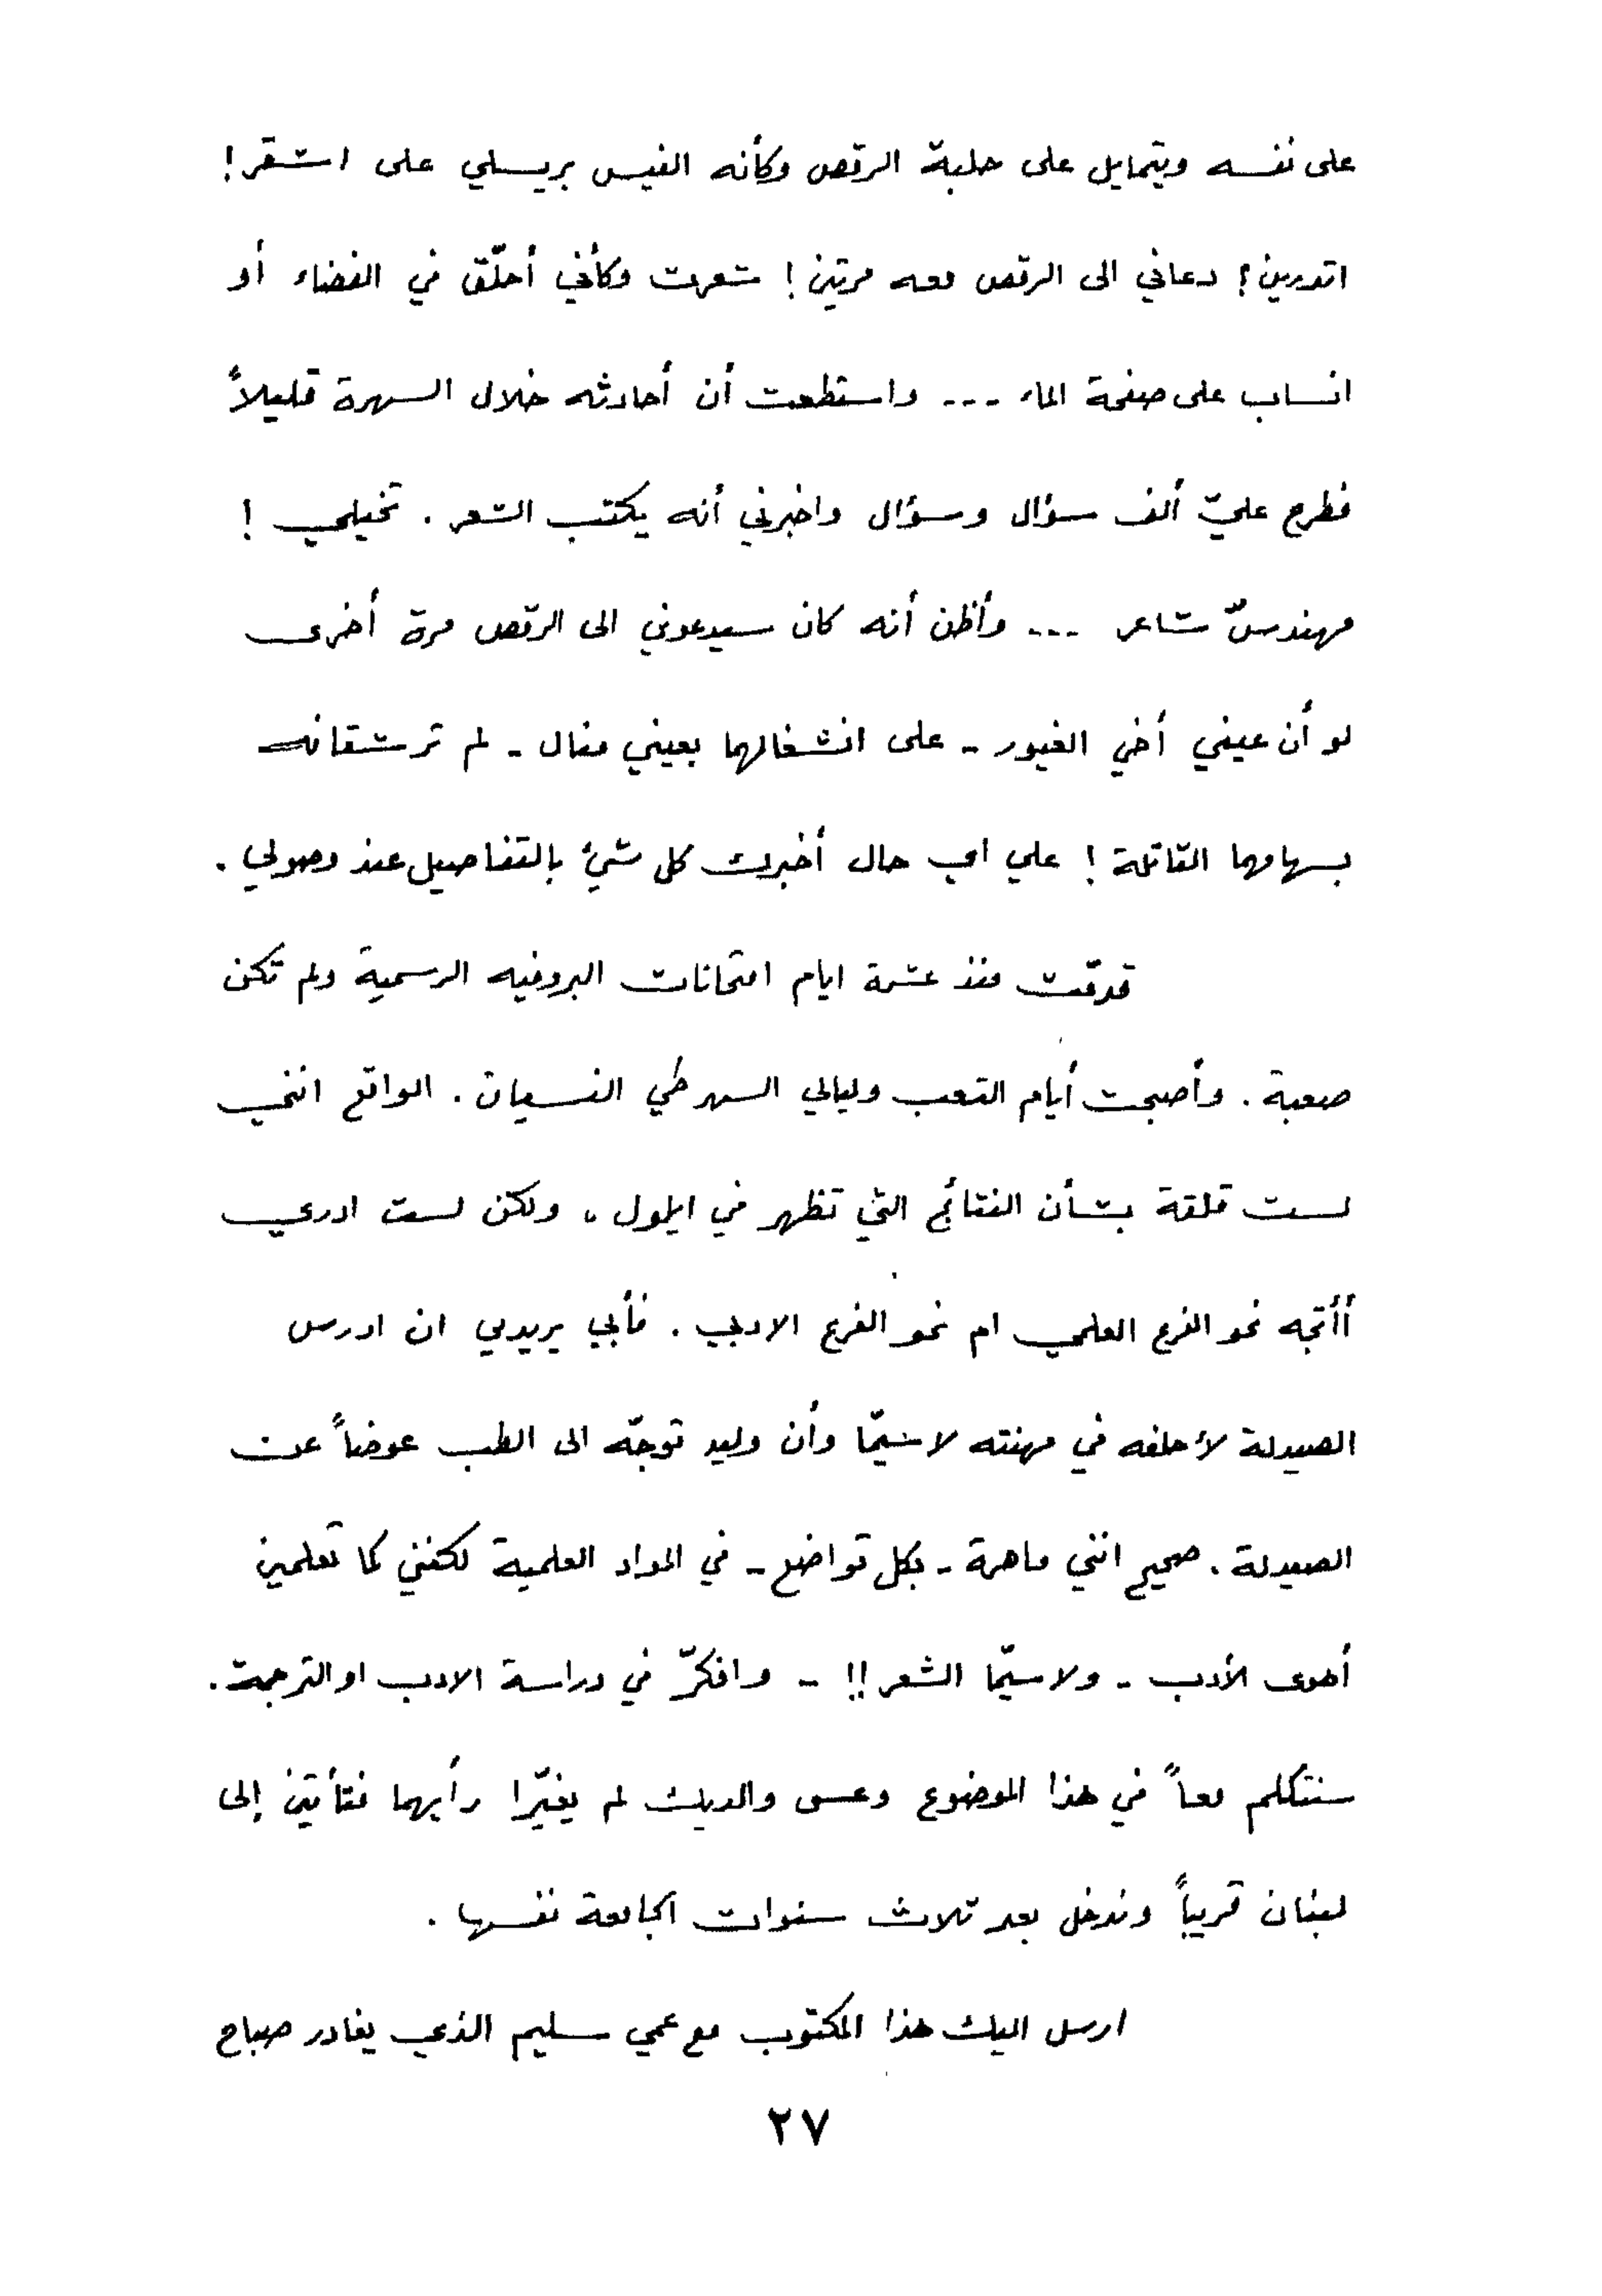 على نفسه ويتمايل على حلبة الرقص وكأنه الفيس بريسلي على اشقر!
اتدرين؟ دعاني الى الرقص معه مرتين! شعرت وكأني أحلّق في الفضاء أو
انساب على صفحة الماء ... واستطعت أن أحادثه خلال السهرة قليلاً
فطرح عليّ ألف سؤال وسؤال واخبرني أنه يكتب الشعر. تخيلي!
مهندسٌ شاعر ... وأظن أنه كان سيدعوني الى الرقص مرة أخرى
لو أن عيني أخي الغيور - على انشغالهما بعيني منال - لم ترشقانه
بسهامهما القاتلة! علي اي حال أخبرك كل شئ بالتفاصيل عند وصولي.
قدمّت منذ عشرة ايام امتحانات البروفيه الرسمية ولم تكن
صعبة. وأصبحت أيام التعب وليالي السهر طي النسيان. الواقع انني
لست قلقة بشأن النتائج التي تظهر في ايلول، ولكن لست ادري
أأتجه نحو الفرع العلمي ام نحو الفرع الادبي. فأبي يريدني ان ادرس
الصيدلة لأخلفه في مهنته لاسيّما وأن وليد توجّه الى الطب عوضاً عن
الصيدلة. صحيح انني ماهرة - بكل تواضع - في المواد العلمية لكنني كما تعلمين
أهوى الأدب - ولا سيّما الشعر!! - وافكرّ في دراسة الادب او الترجمة.
سنتكلم معاً في هذا الموضوع وعسى والديك لم يغيّرا رأيهما فتأتين إلى
لبنان قريباً وندخل بعد ثلاث سنوات الجامعة نفسها.
ارسل اليك هذا المكتوب مع عمي سليم الذي يغادر صباح
٢٧